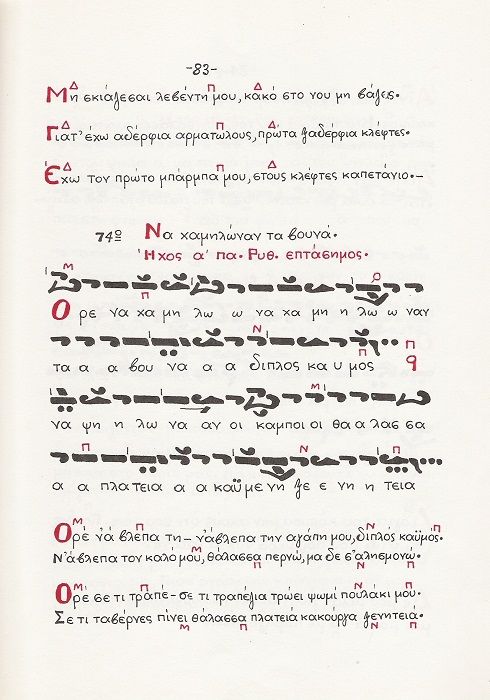 -83-
Μη σκιάζεσαι λεβέντη μου, κακό στο νου μη βάζεις.
Γιατ' έχω αδέρφια αρματωλους, πρώτα ξαδέρφια κλέφτες.
Έχω τον πρώτο μπάρμπα μου, στους κλέφτες καπετάνιο.-
74ο Να χαμηλώναν τα βουνά.
Ήχος α' πα. Ρυθ. επτάσημος.
Ο ρε να χα μη λω ω να χα μη η λω ω ναν
τα α α βου να α α διπλος κα υ μος
να ψη η λω να αν οι καμποι οι θα α λασ σα
α α πλατεια α α καϋ με νη ξε ε νη η τεια
Ορέ νάβλεπα τη-νάβλεπα την αγάπη μου, διπλός καϋμός.
Ν' άβλεπα τον καλό μου, θάλασσα περνώ, μα δε σ' αλησμονώ.
Ορέ σε τι τραπέ-σε τι τραπέζια τρώει ψωμί πουλάκι μου.
Σε τι ταβέρνες πίνει θάλασσα πλατειά κακούργα ξενητειά.